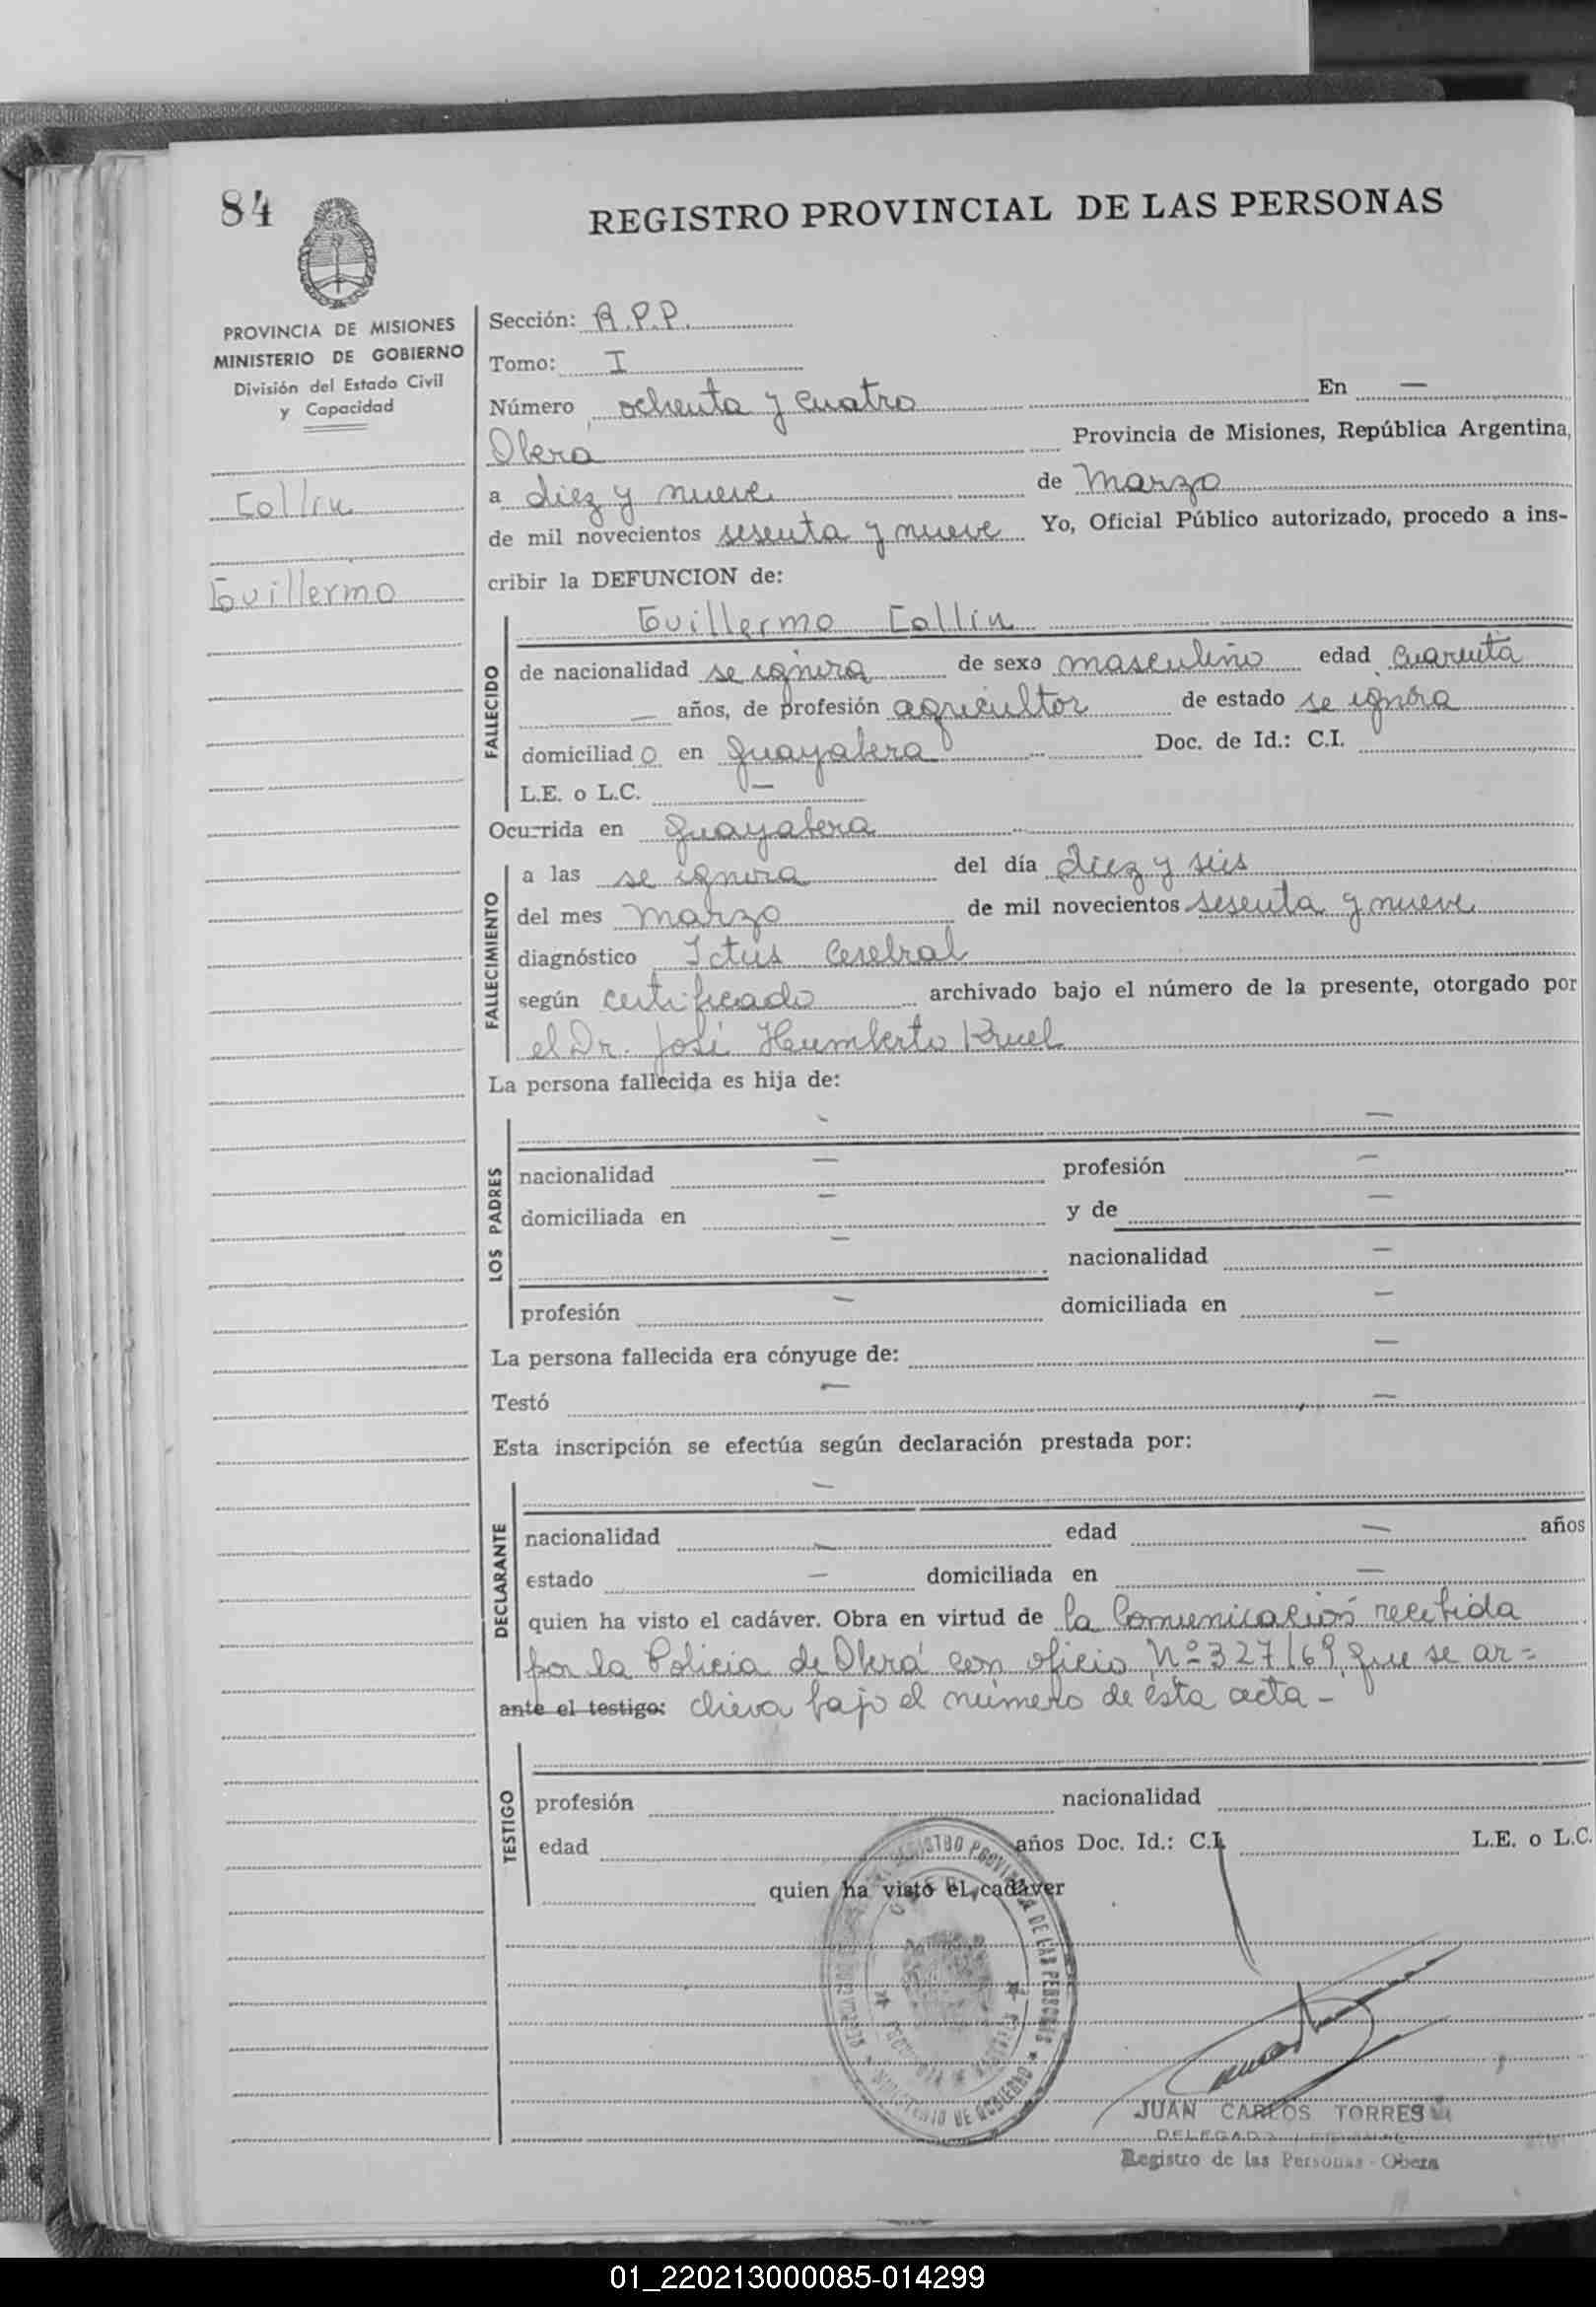 84
REGISTRO PROVINCIAL DE LAS PERSONAS
PROVINCIA DE MISIONES
MINISTERIO DE GOBIERNO
División del Estado Civil
y Capacidad
Collin
Guillermo
Sección: R.P.P.
Tomo: I
Número ochenta y cuatro En —
Oberá Provincia de Misiones, República Argentina,
a diez y nueve de Marzo
de mil novecientos sesenta y nueve Yo, Oficial Público autorizado, procedo a ins-
cribir la DEFUNCION de:
FALLECIDO
Guillermo Collin
de nacionalidad se ignora de sexo masculino edad cuarenta
— años, de profesión agricultor de estado se ignora
domiciliado en Guayabera Doc. de Id.: C.I.
L.E. o L.C. —
Ocurrida en Guayabera
FALLECIMIENTO
a las se ignora del día diez y seis
del mes Marzo de mil novecientos sesenta y nueve
diagnóstico Ictus Cerebral
según certificado archivado bajo el número de la presente, otorgado por
el Dr. José Humberto Kruel
La persona fallecida es hija de:
LOS PADRES
— —
nacionalidad — profesión —
domiciliada en — y de —
— nacionalidad —
profesión — domiciliada en —
La persona fallecida era cónyuge de: —
Testó — —
Esta inscripción se efectúa según declaración prestada por:
DECLARANTE
—
nacionalidad — edad — años
estado — domiciliada en —
quien ha visto el cadáver. Obra en virtud de la Comunicación recibida
por la Policia de Oberá con oficio Nº 327/69, que se ar=
ante el testigo: chiva bajo el número de esta acta -
TESTIGO
profesión nacionalidad
edad años Doc. Id.: C.I. L.E. o L.C.
quien ha visto el cadáver
REGISTRO PROVINCIAL DE LAS PERSONAS
MINISTERIO DE GOBIERNO
JUAN CARLOS TORRES
DELEGADO
Registro de las Personas - Obera
01_220213000085-014299